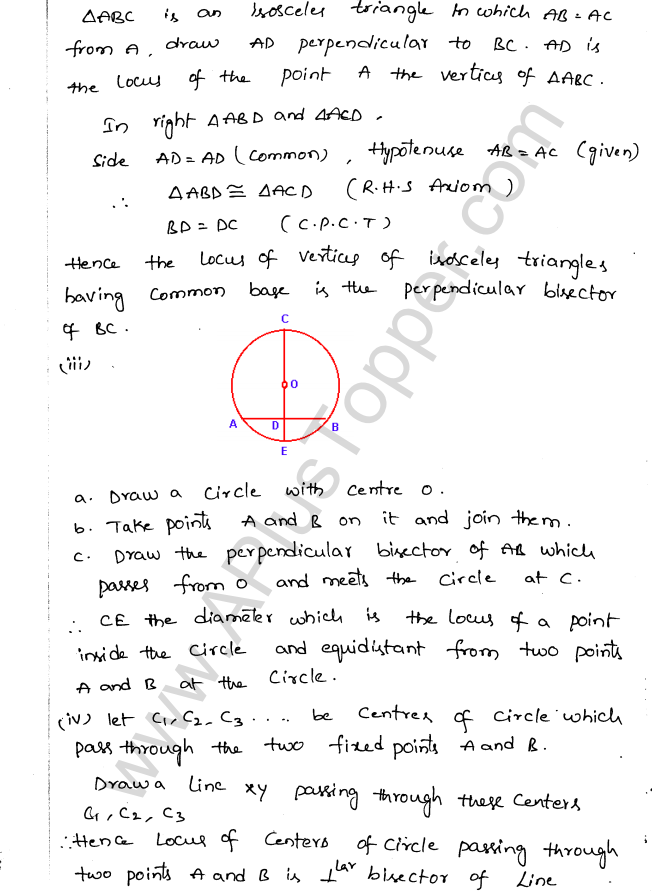 △ABC is an isosceles triangle in which AB = AC
from A, draw AD perpendicular to BC. AD is
the locus of the point A the vertices of △ABC.
In right △ABD and △ACD,
Side AD = AD (common), Hypotenuse AB = AC (given)
∴ △ABD ≅ △ACD (R.H.S Axiom)
BD = DC (C.P.C.T)
Hence the locus of vertices of isosceles triangles
having common base is the perpendicular bisector
of BC.
(iii)
C
O
A D B
E
a. Draw a circle with centre O.
b. Take points A and B on it and join them.
c. Draw the perpendicular bisector of AB which
passes from O and meets the circle at C.
∴ CE the diameter which is the locus of a point
inside the circle and equidistant from two points
A and B at the circle.
(iv) let C1, C2, C3 .... be centres of circle which
pass through the two fixed points A and B.
Draw a line xy passing through these centers
C1, C2, C3
∴ Hence Locus of centers of circle passing through
two points A and B is ⊥lar bisector of line
www.APlusTopper.com